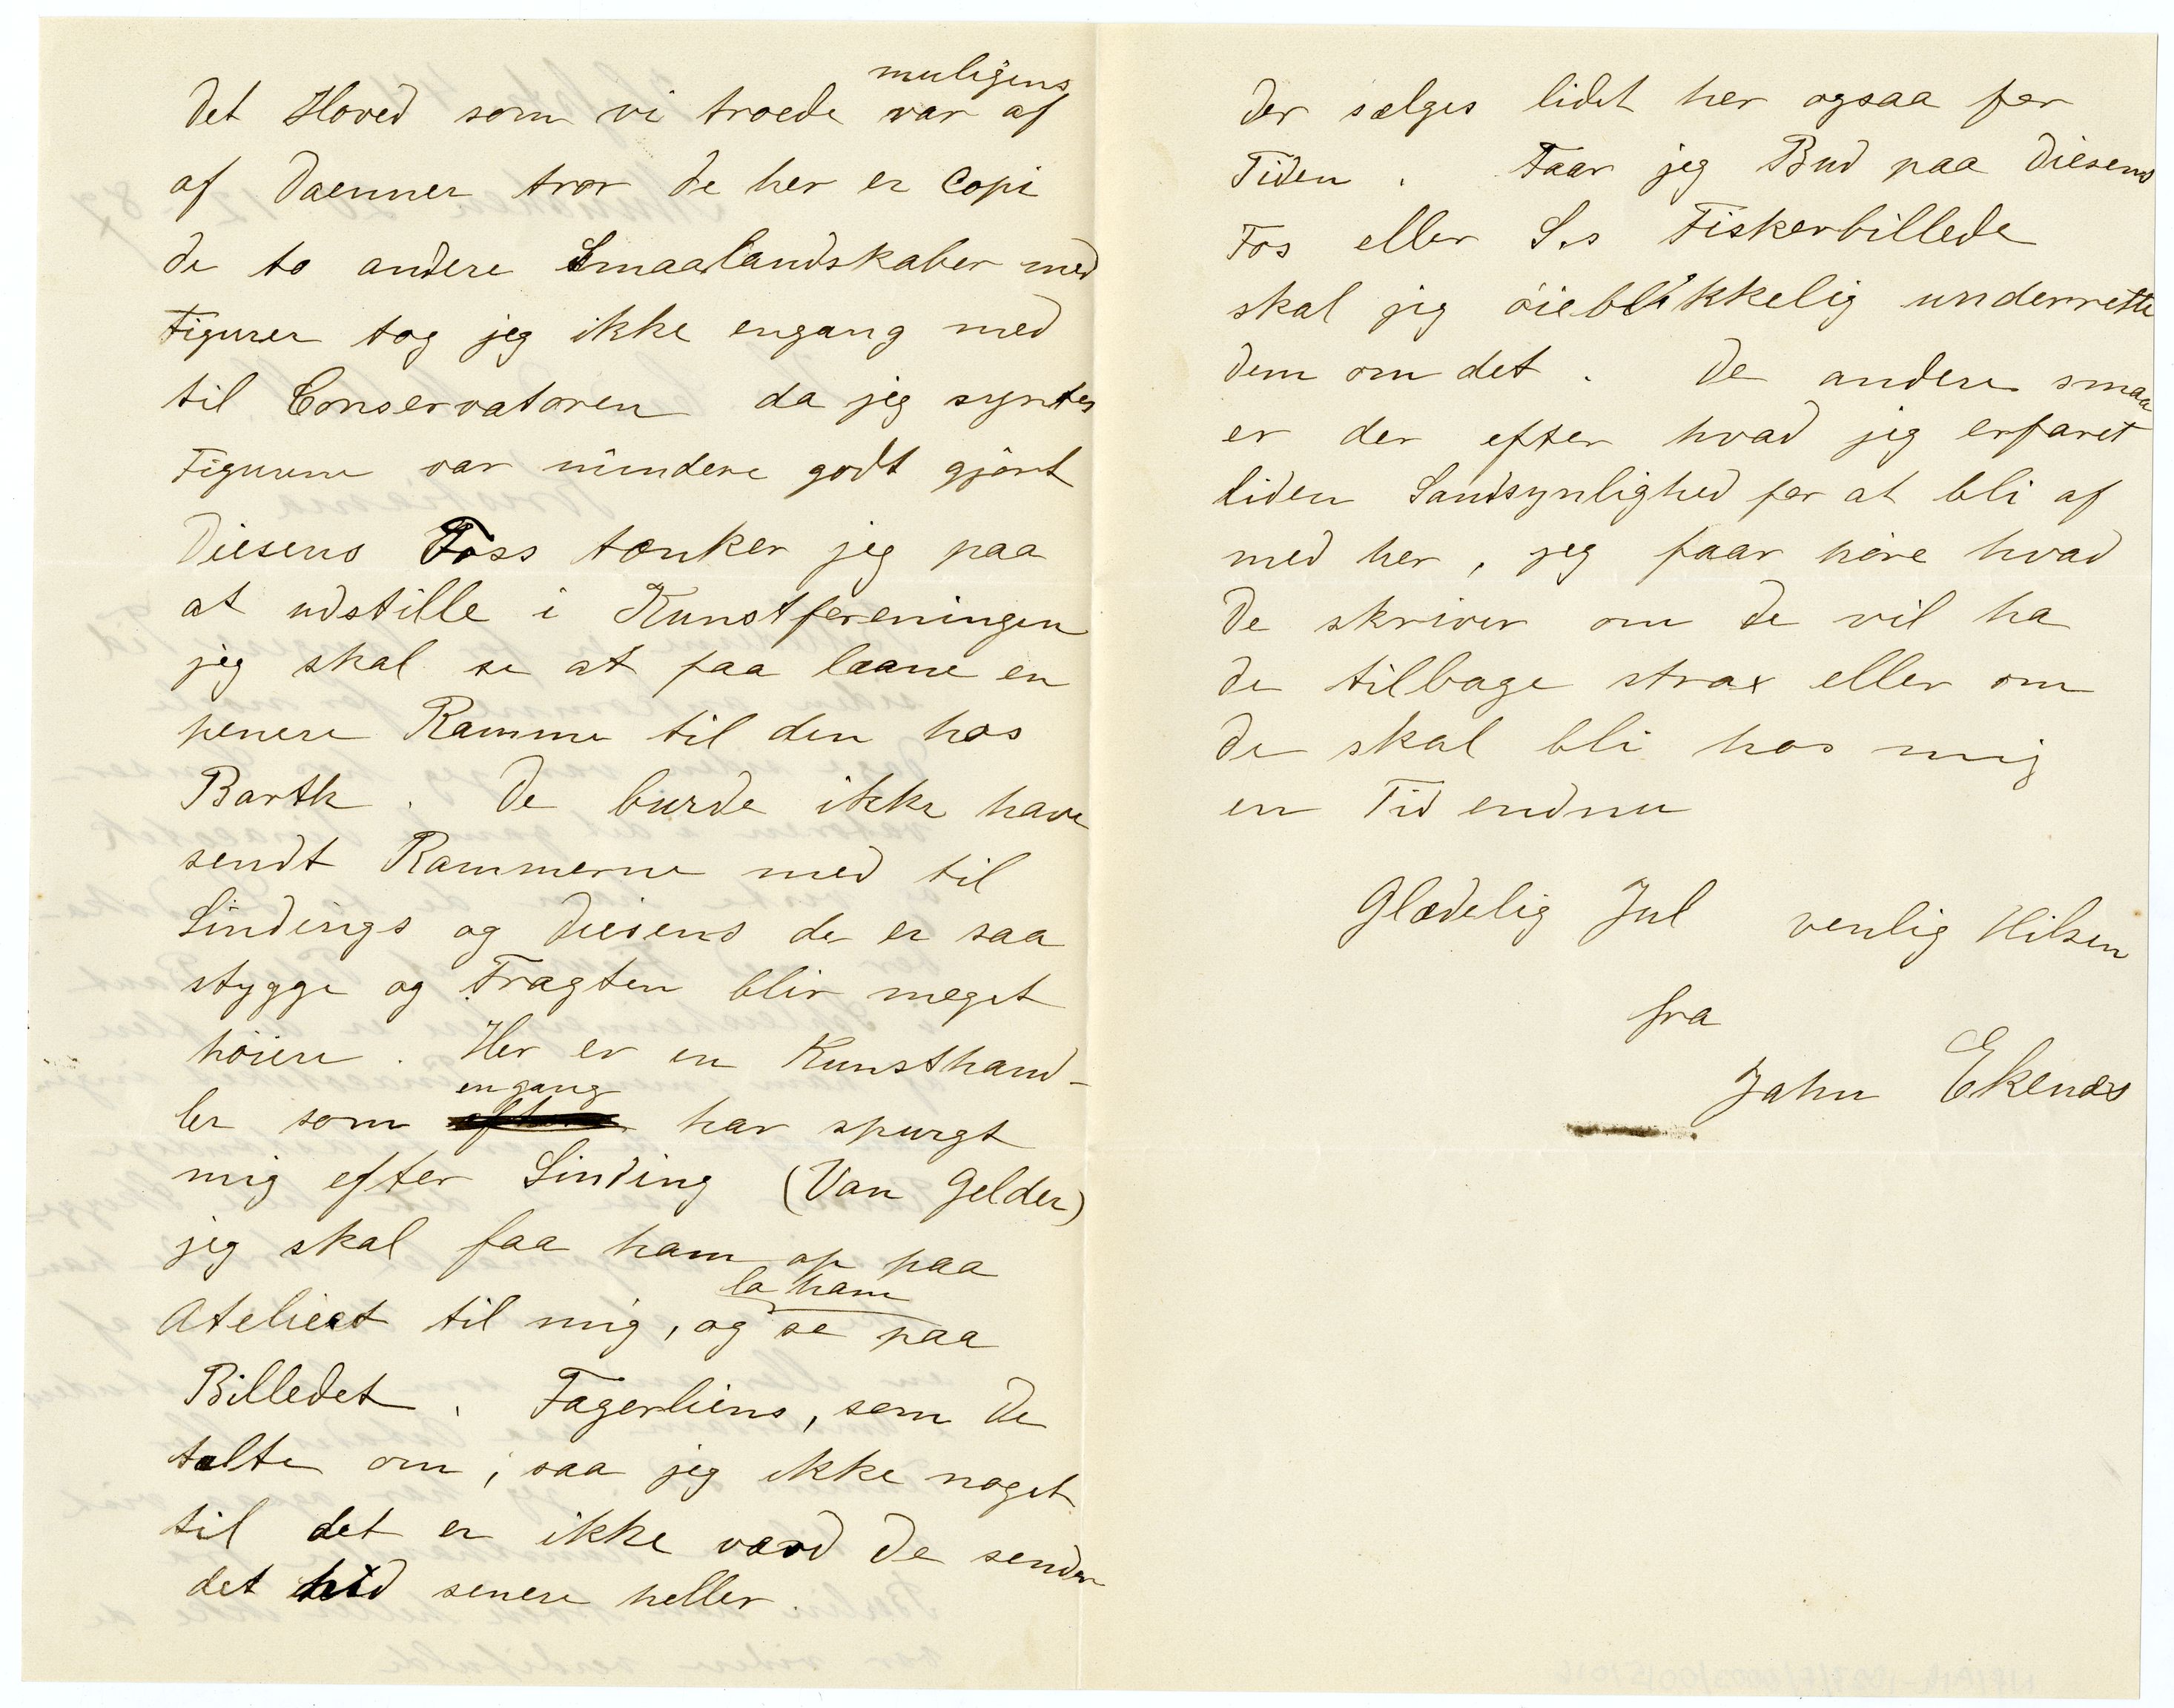 muligens
Det Hoved som vi troede var af
af Daenner tror de her er Copi
de to andere Smaalandskaber med
Figurer tog jeg ikke engang med
til Conservatoren da jeg syntes
Figurene var mindere godt gjört
Diesens Foss tænker jeg paa
at udstille i Kunstforeningen
jeg skal se at faa laane en
penere Ramme til den hos
Barth. De burde ikke have
sendt Rammerne med til
Sindings og Diesens de er saa
stygge og Fragten blir meget
höiere. Her er en Kunsthand-
engang
ler som har spurgt
mig efter Sinding (Van Gelder)
jeg skal faa ham op paa
la ham
Atelieet til mig, og se paa
Billedet. Fagerliens, som De
talte om, saa jeg ikke noget
til det er ikke værd De sender
det hid senere heller.
Der sælges lidet her ogsaa for
Tiden. Faar jeg Bud paa Diesens
Fos eller S.s Fiskerbillede
skal jeg öieblikkelig underrette
Dem om det. De andere smaa
er der efter hvad jeg erfaret
liden Sandsynlighed for at bli af
med her, jeg faar höre hvad
De skriver om De vil ha
de tilbage strax eller om
de skal bli hos mig
en Tid endnu
Glædelig Jul venlig Hilsen
fra
Jahn Ekenæs